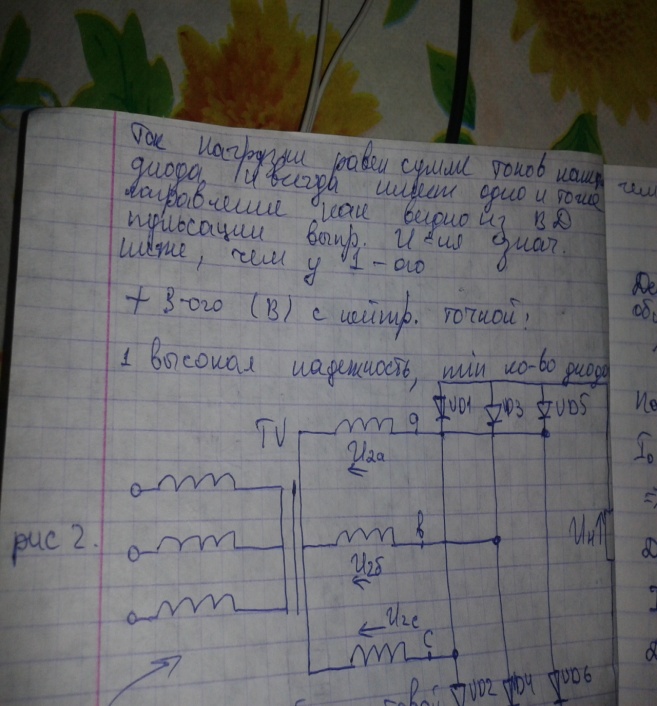 Ток нагрузки равен сумме токов
диода и всегда имеет одно и тоже
направление как видно из ВД
пульсации выпр. U-ия знач.
ниже, чем у 1-ого
+ 3-ого (В) с нейтр. точкой:
1 высокая надежность, min ко-во диодо
VD1 VD3 VD5
TV
a
U2a
рис 2.
в
Uн
U2б
U2c
c
VD2 VD4 VD6